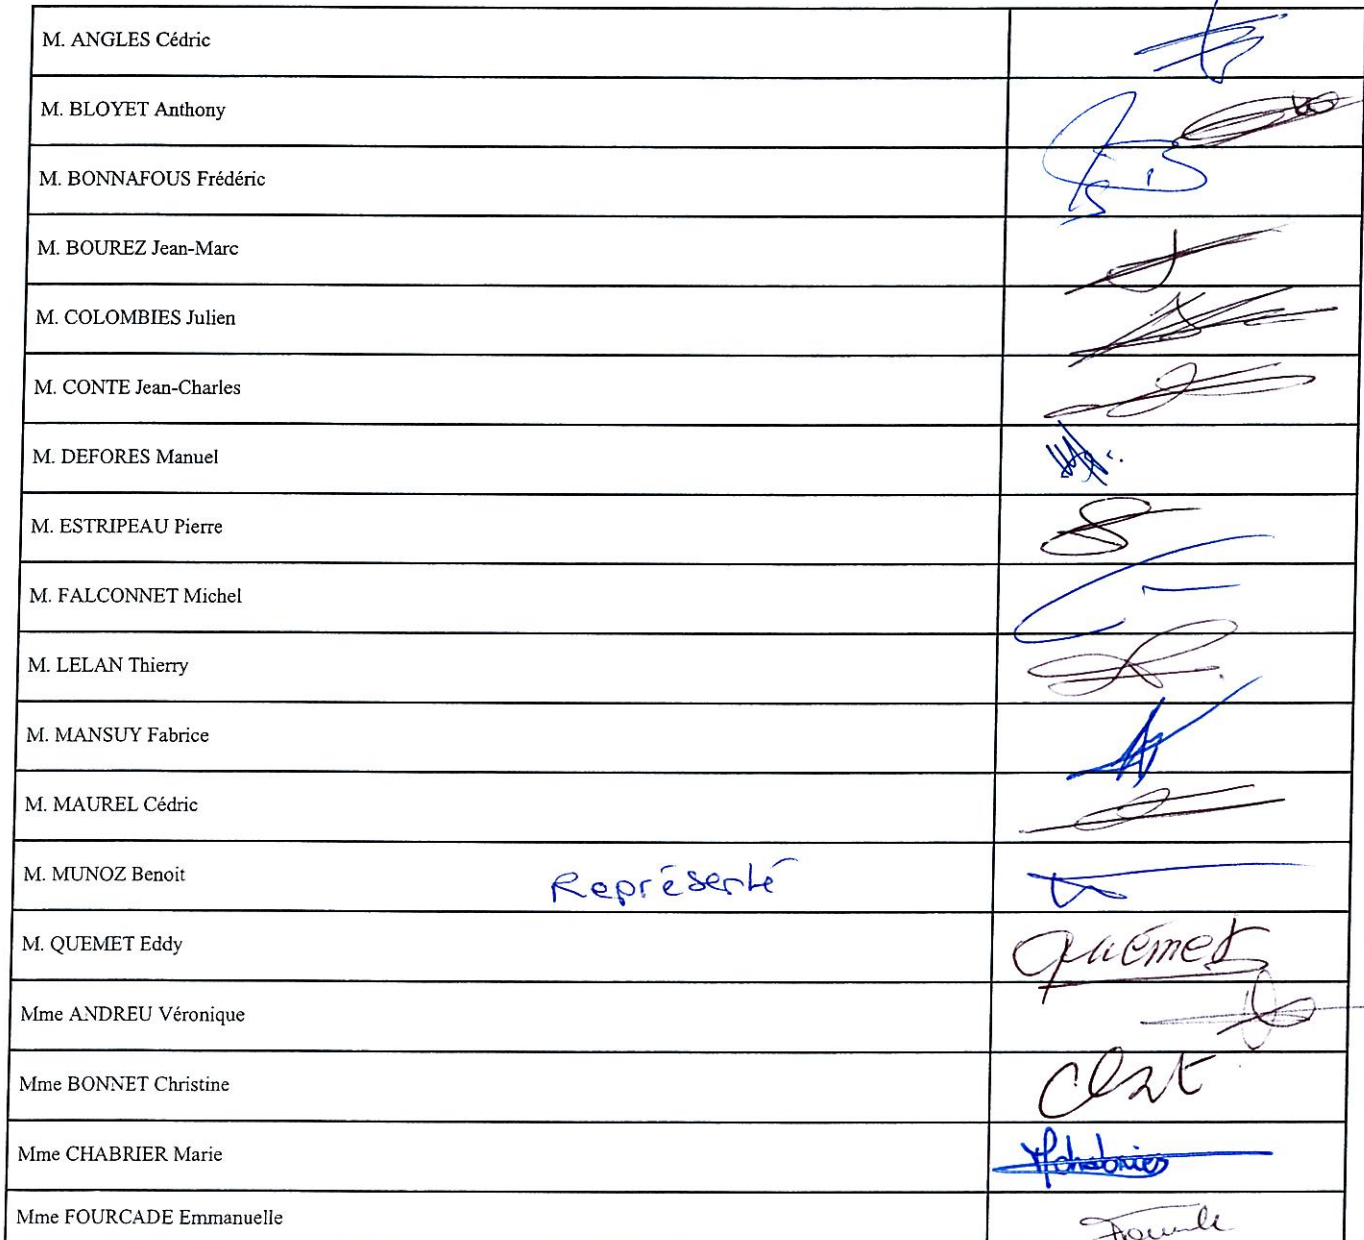 M. ANGLES Cédric
M. BLOYET Anthony
M. BONNAFOUS Frédéric
M. BOUREZ Jean-Marc
M. COLOMBIES Julien
M. CONTE Jean-Charles
M. DEFORES Manuel
M. ESTRIPEAU Pierre
M. FALCONNET Michel
M. LELAN Thierry
M. MANSUY Fabrice
M. MAUREL Cédric
M. MUNOZ Benoit Représenté
M. QUEMET Eddy Quémet
Mme ANDREU Véronique
Mme BONNET Christine
Mme CHABRIER Marie
Mme FOURCADE Emmanuelle